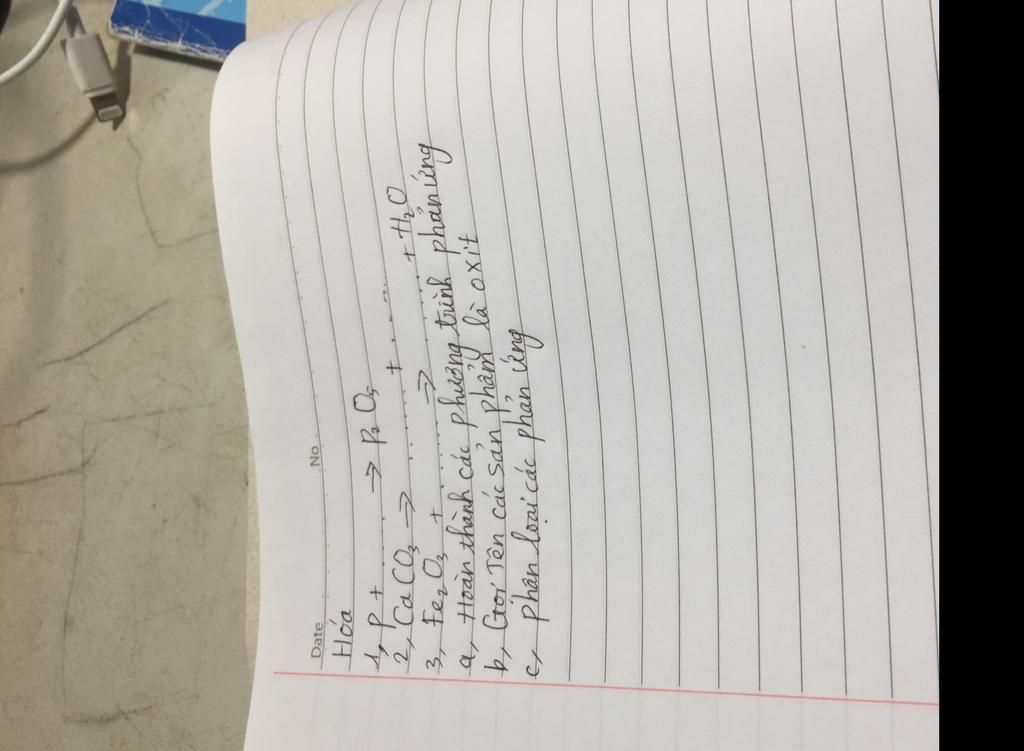 Date No
Hóa
1, P + ...... → P₂O₅
2, CaCO₃ → ....... + .......
3, Fe₂O₃ + ....... → ....... + H₂O
a, Hoàn thành các phương trình phản ứng
b, Gọi Tên các sản phẩm là oxit
c, phân loại các phản ứng